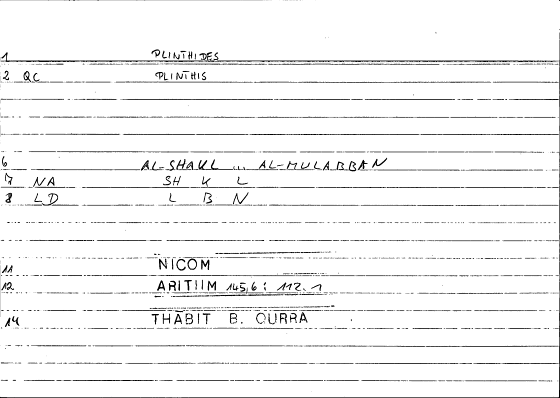 1 PLINTHIDES
2 QC PLINTHIS
6 AL-SHAKL ... AL-MULABBAN
7 NA SH K L
8 LD L B N
11 NICOM
12 ARITHM 145,6 : 112.1
14 THĀBIT B. QURRA